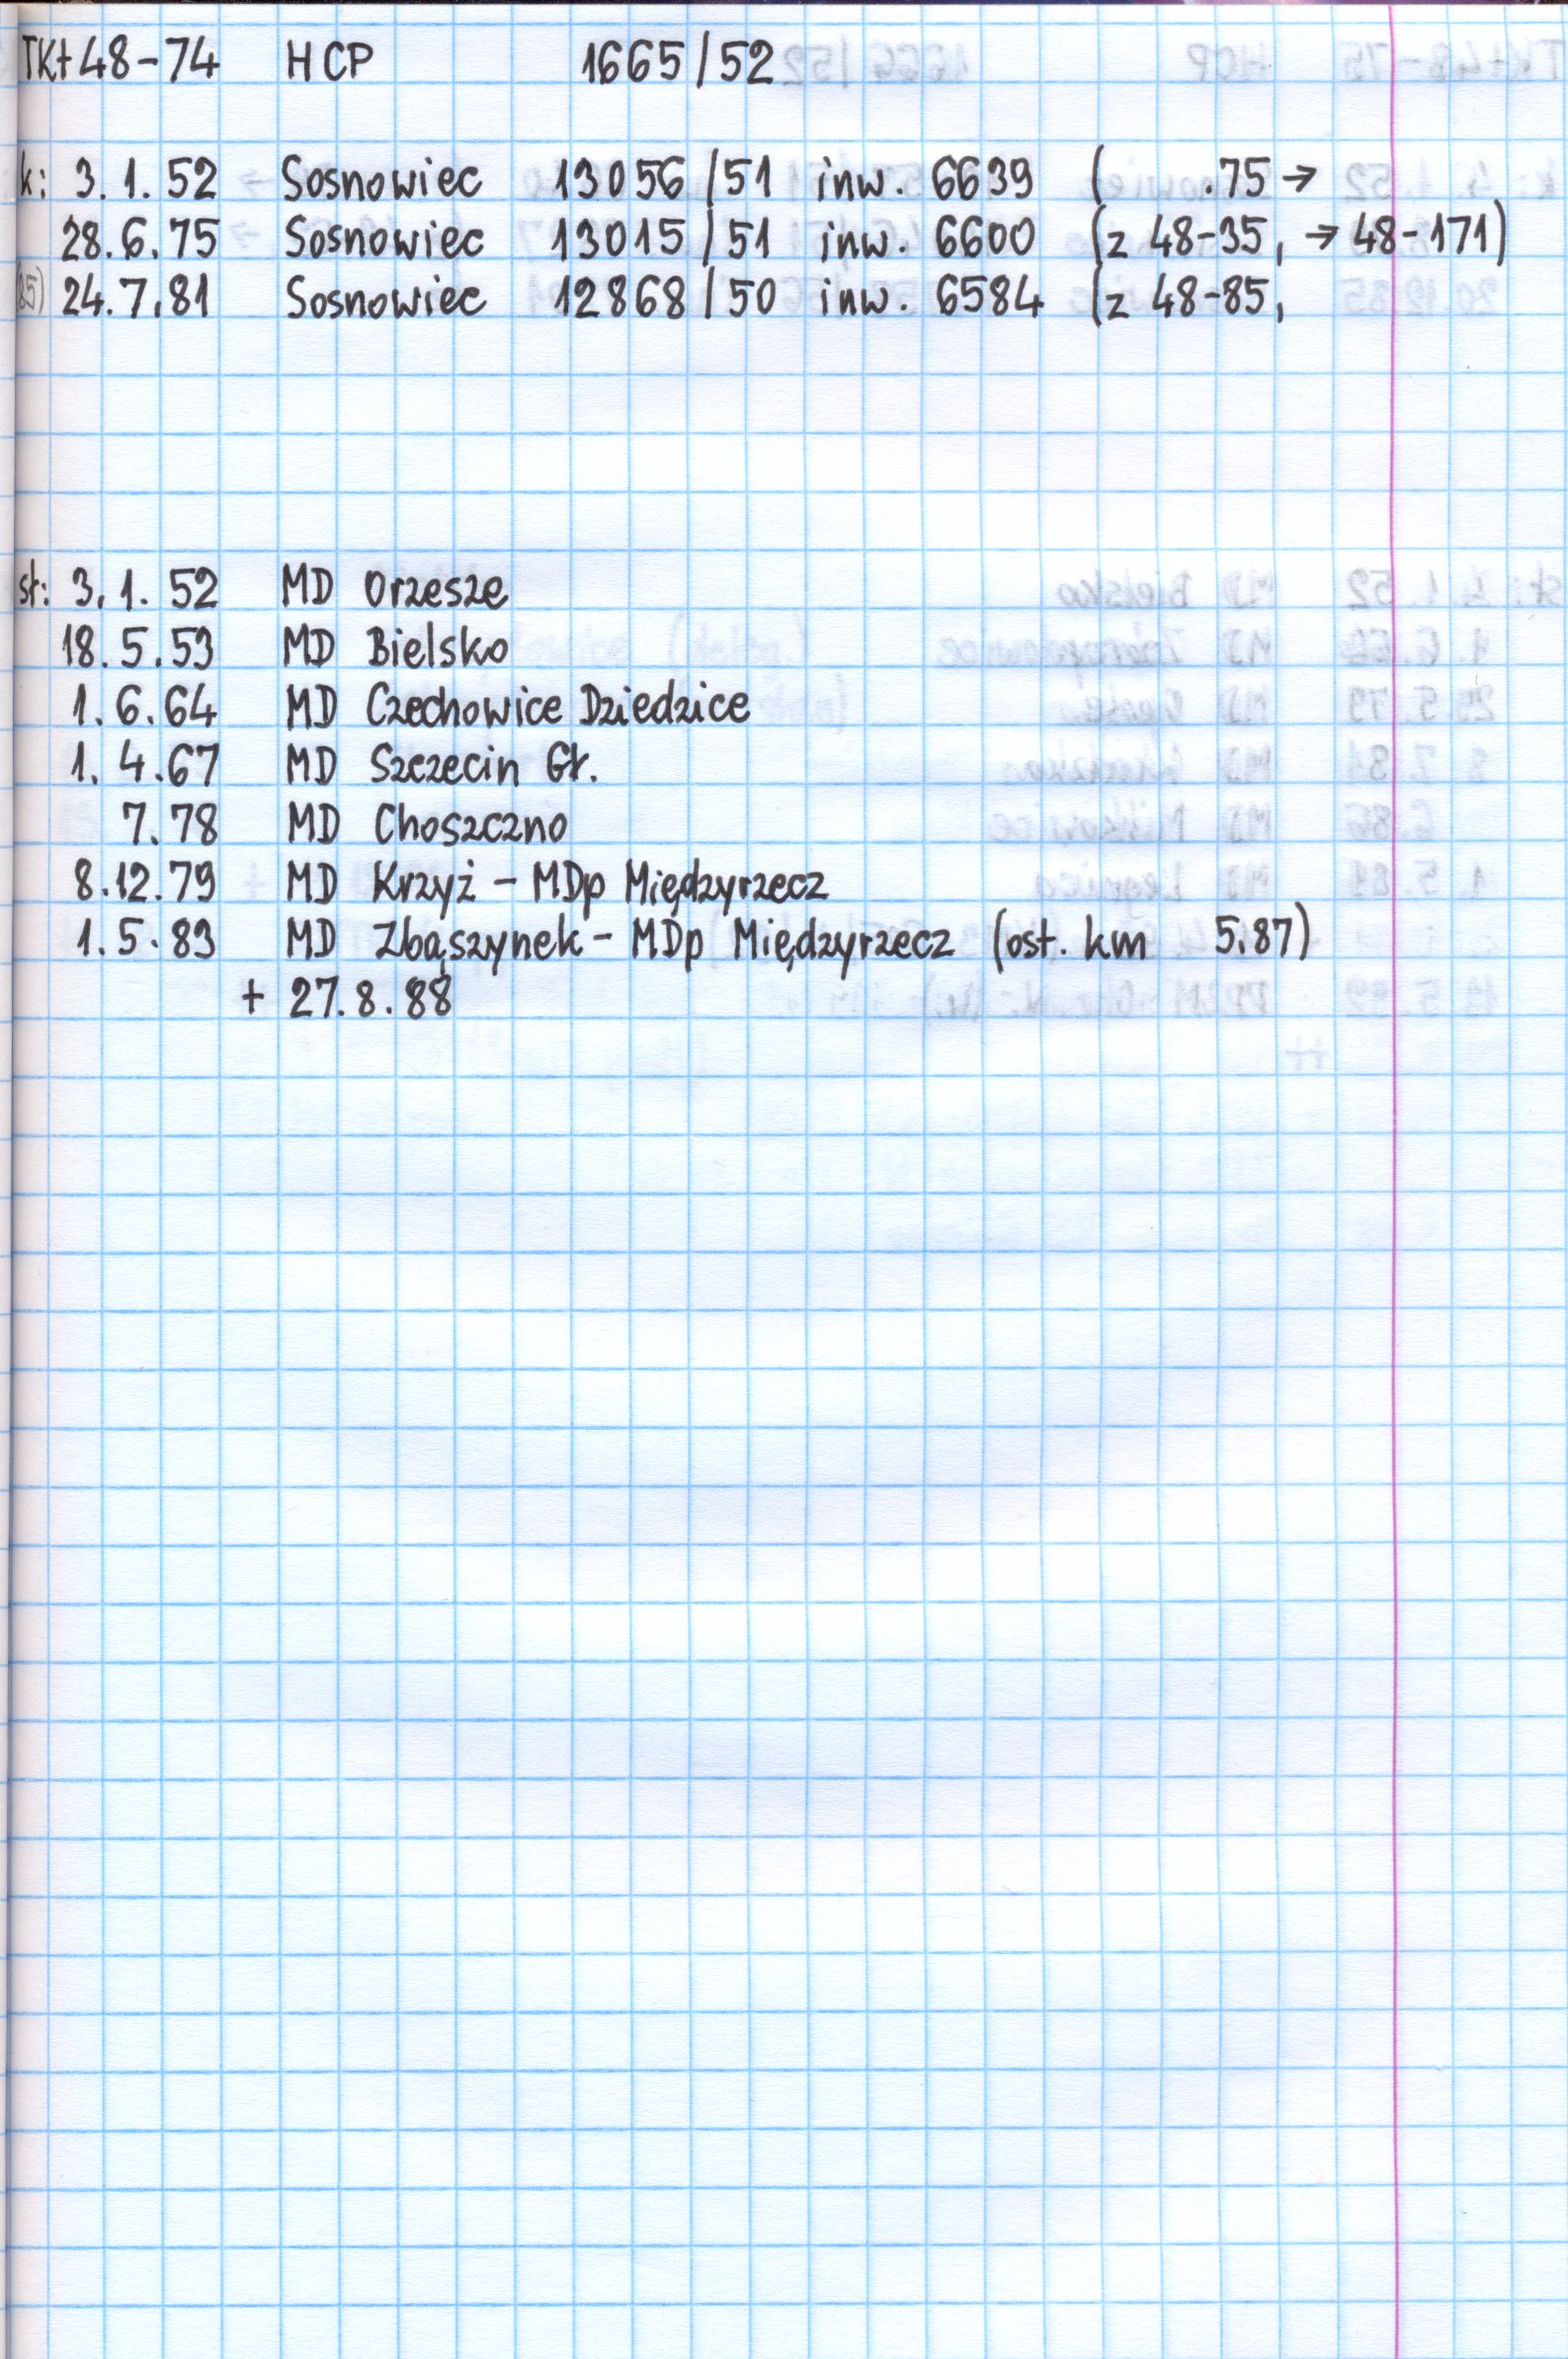 TKt 48-74 HCP 1665/52
k: 3.1.52 Sosnowiec 13056/51 inw. 6639 ( .75 →
28.6.75 Sosnowiec 13015/51 inw. 6600 (z 48-35, → 48-171)
(85) 24.7.81 Sosnowiec 12868/50 inw. 6584 (z 48-85,
st: 3.1.52 MD Orzesze
18.5.53 MD Bielsko
1.6.64 MD Czechowice Dziedzice
1.4.67 MD Szczecin Gł.
7.78 MD Choszczno
8.12.79 MD Krzyż - MDp Międzyrzecz
1.5.83 MD Zbąszynek - MDp Międzyrzecz (ost. km 5.87)
+ 27.8.88